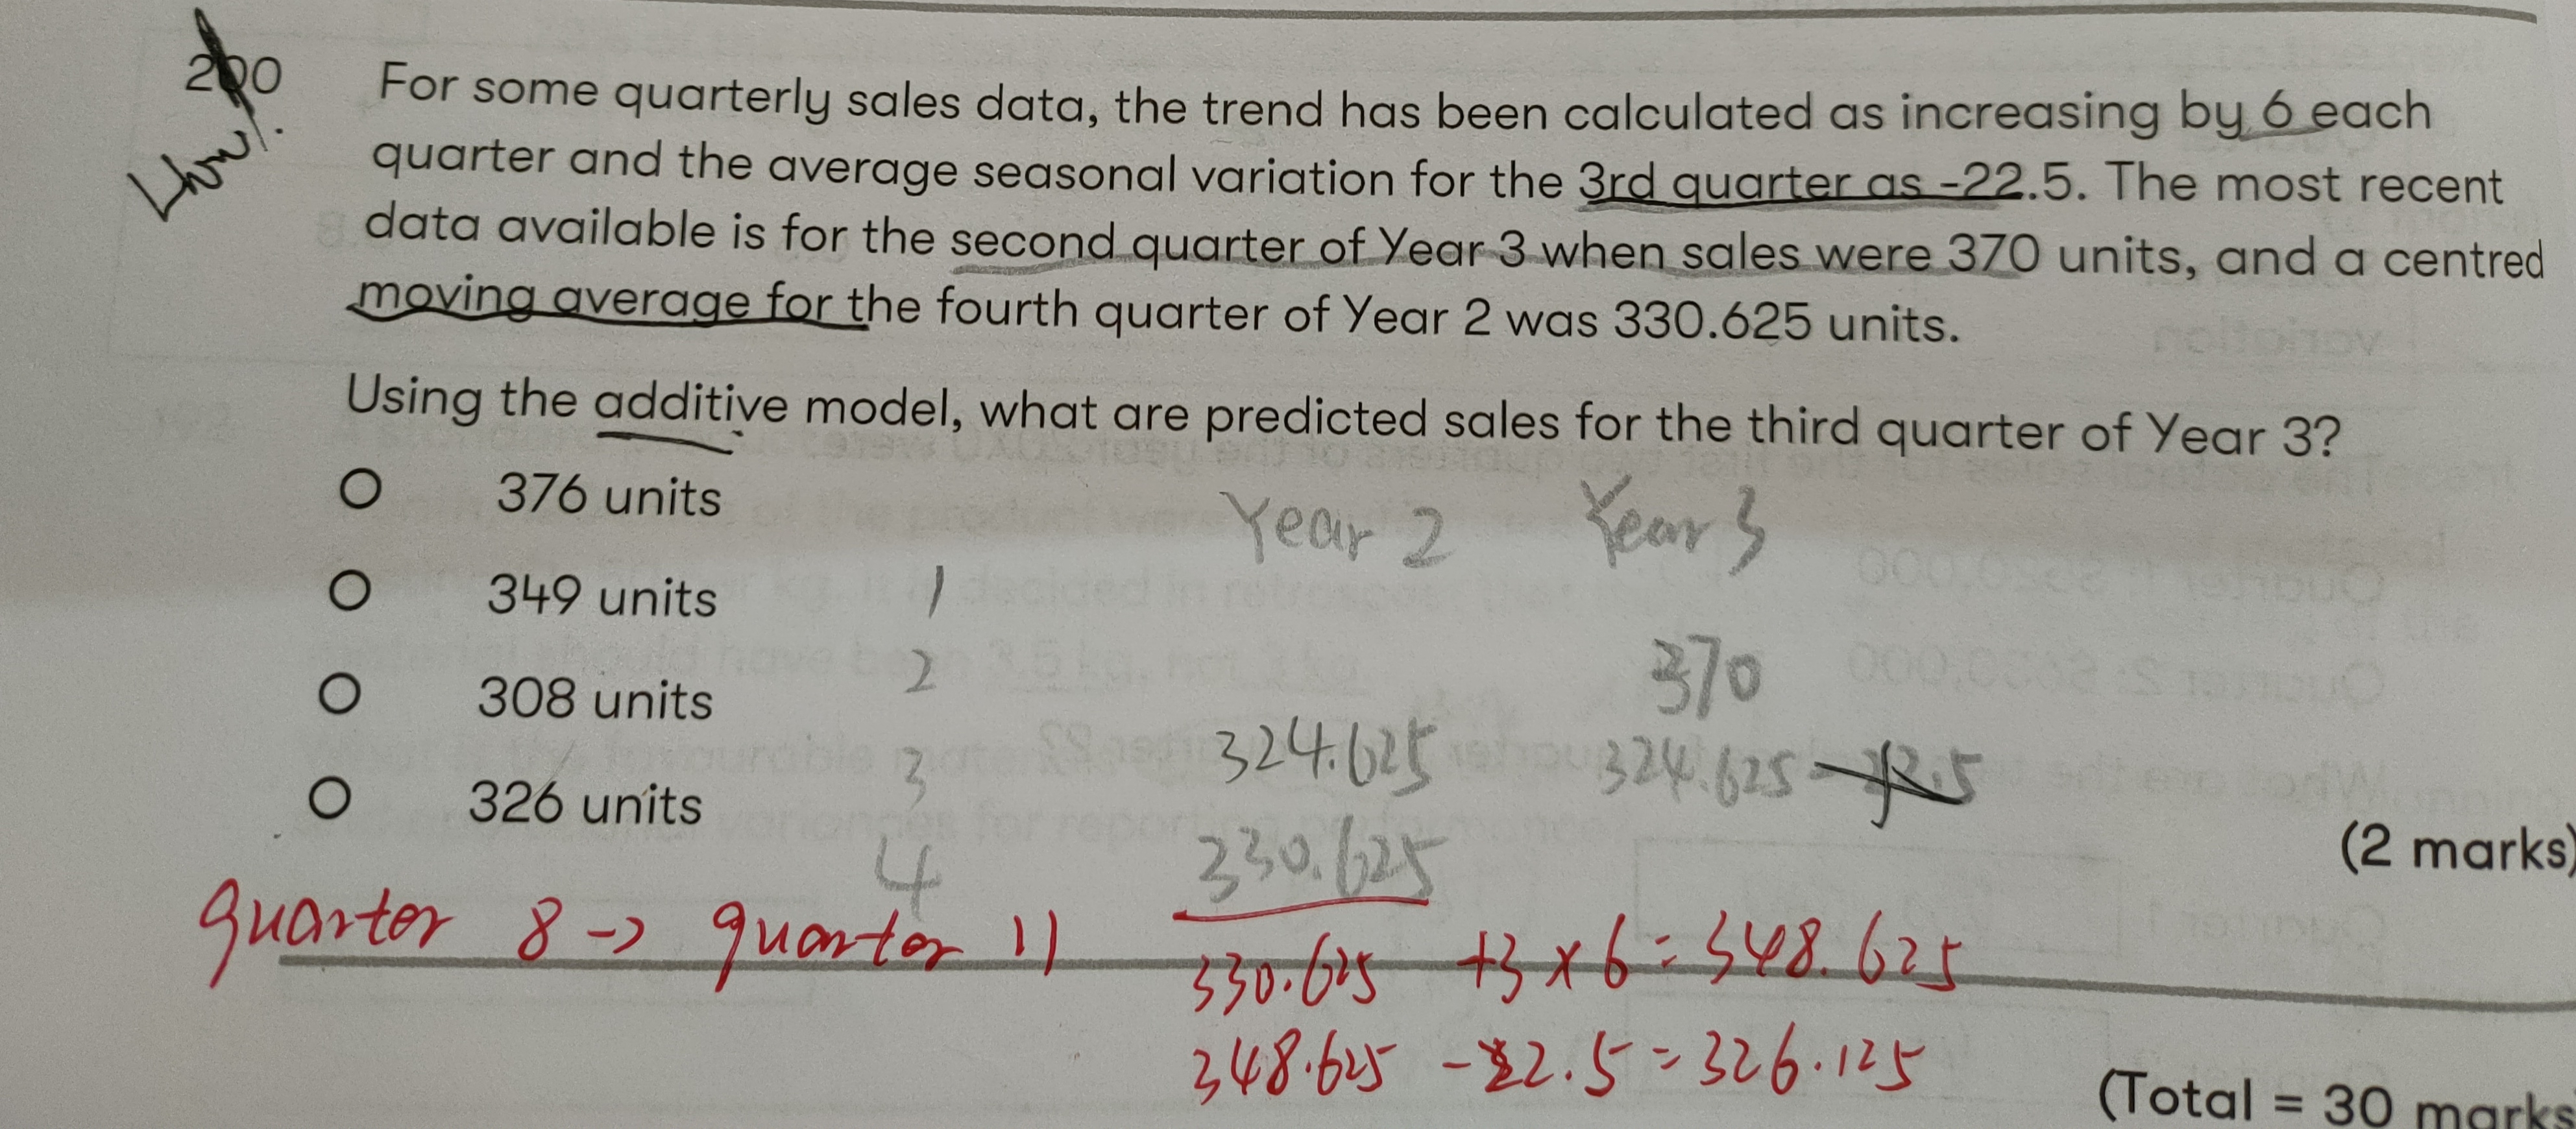 200
For some quarterly sales data, the trend has been calculated as increasing by 6 each
quarter and the average seasonal variation for the 3rd quarter as -22.5. The most recent
data available is for the second quarter of Year 3 when sales were 370 units, and a centred
moving average for the fourth quarter of Year 2 was 330.625 units.
Using the additive model, what are predicted sales for the third quarter of Year 3?
376 units
349 units
308 units
326 units
Year 2 Year 3
1
2 370
3 324.625 324.625 - 22.5
4 330.625
(2 marks)
quarter 8 -> quarter 11
330.625 + 3 × 6 = 348.625
348.625 - 22.5 = 326.125
(Total = 30 marks